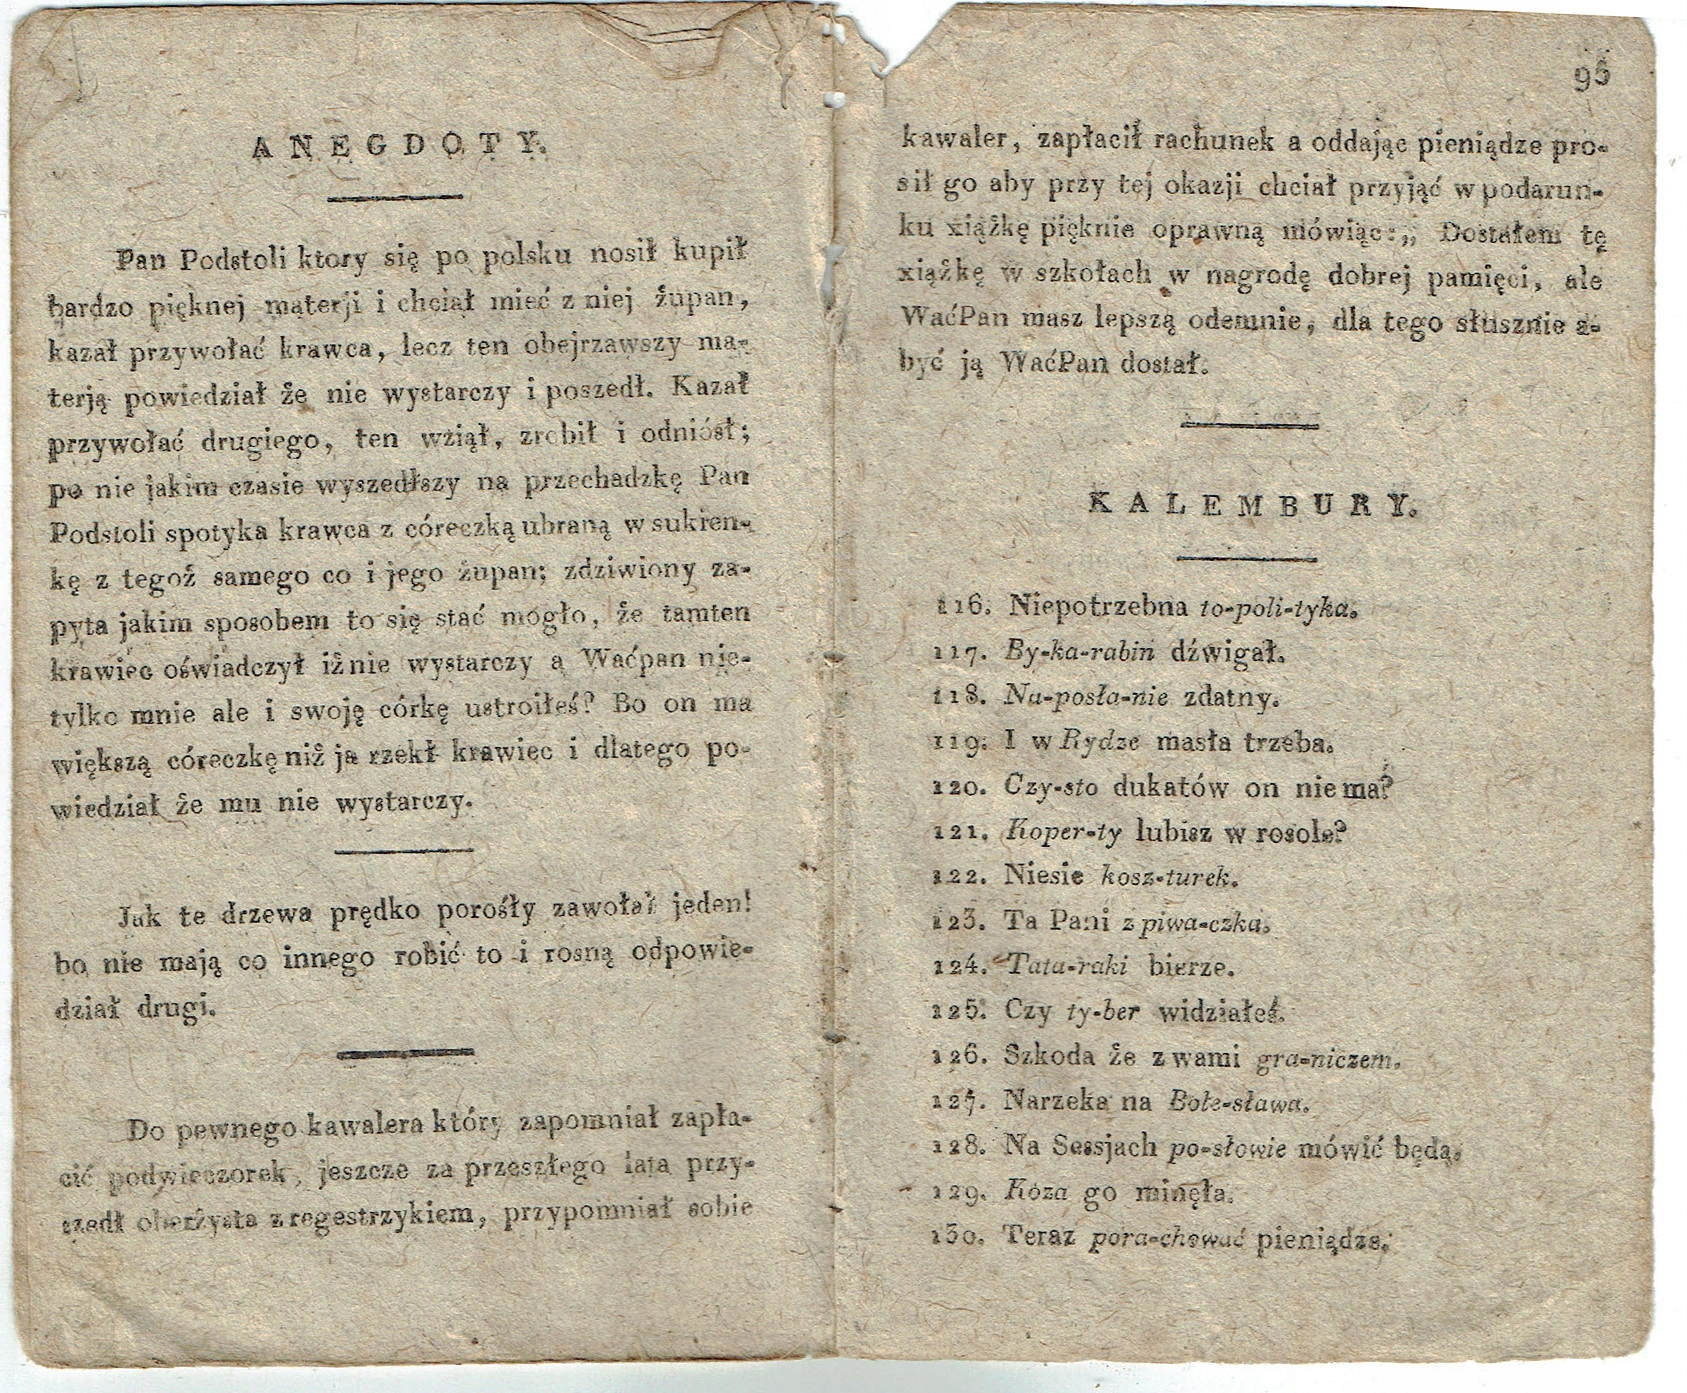 ANEGDOTY.
Pan Podstoli ktory się po polsku nosił kupił
bardzo pięknej materji i chciał mieć z niej żupan,
kazał przywołać krawca, lecz ten obejrzawszy ma-
terją powiedział że nie wystarczy i poszedł. Kazał
przywołać drugiego, ten wziął, zrobił i odniósł;
po nie jakim czasie wyszedłszy na przechadzkę Pan
Podstoli spotyka krawca z córeczką ubraną w sukien-
kę z tegoż samego co i jego żupan; zdziwiony za-
pyta jakim sposobem to się stać mogło, że tamten
krawiec oświadczył iż nie wystarczy a Waćpan nie-
tylko mnie ale i swoję córkę ustroiłeś? Bo on ma
większą córeczkę niż ja rzekł krawiec i dlatego po-
wiedział że mu nie wystarczy.
Jak te drzewa prędko porosły zawołał jeden!
bo nie mają co innego robić to i rosną odpowie-
dział drugi.
Do pewnego kawalera który zapomniał zapła-
cić podwieczorek, jeszcze za przeszłego lata przy-
szedł oberżysta z regestrzykiem, przypomniał sobie
95
kawaler, zapłacił rachunek a oddając pieniądze pro-
sił go aby przy tej okazji chciał przyjąć w podarun-
ku xiążkę pięknie oprawną mówiąc: „ Dostałem tę
xiążkę w szkołach w nagrodę dobrej pamięci, ale
WaćPan masz lepszą odemnie, dla tego słusznie a-
być ją WaćPan dostał.
KALEMBURY.
116. Niepotrzebna to-poli-tyka.
117. By-ka-rabin dźwigał.
118. Na-posła-nie zdatny.
119. I w Rydze masła trzeba.
120. Czy-sto dukatów on nie ma?
121. Koper-ty lubisz w rosole?
122. Niesie kosz-turek.
123. Ta Pani z piwa-czka.
124. Tata-raki bierze.
125. Czy ty-ber widziałeś.
126. Szkoda że z wami gra-niczem.
127. Narzeka na Bole-sława.
128. Na Sessjach po-słowie mówić będą.
129. Kóza go minęła.
130. Teraz pora-chować pieniądze.